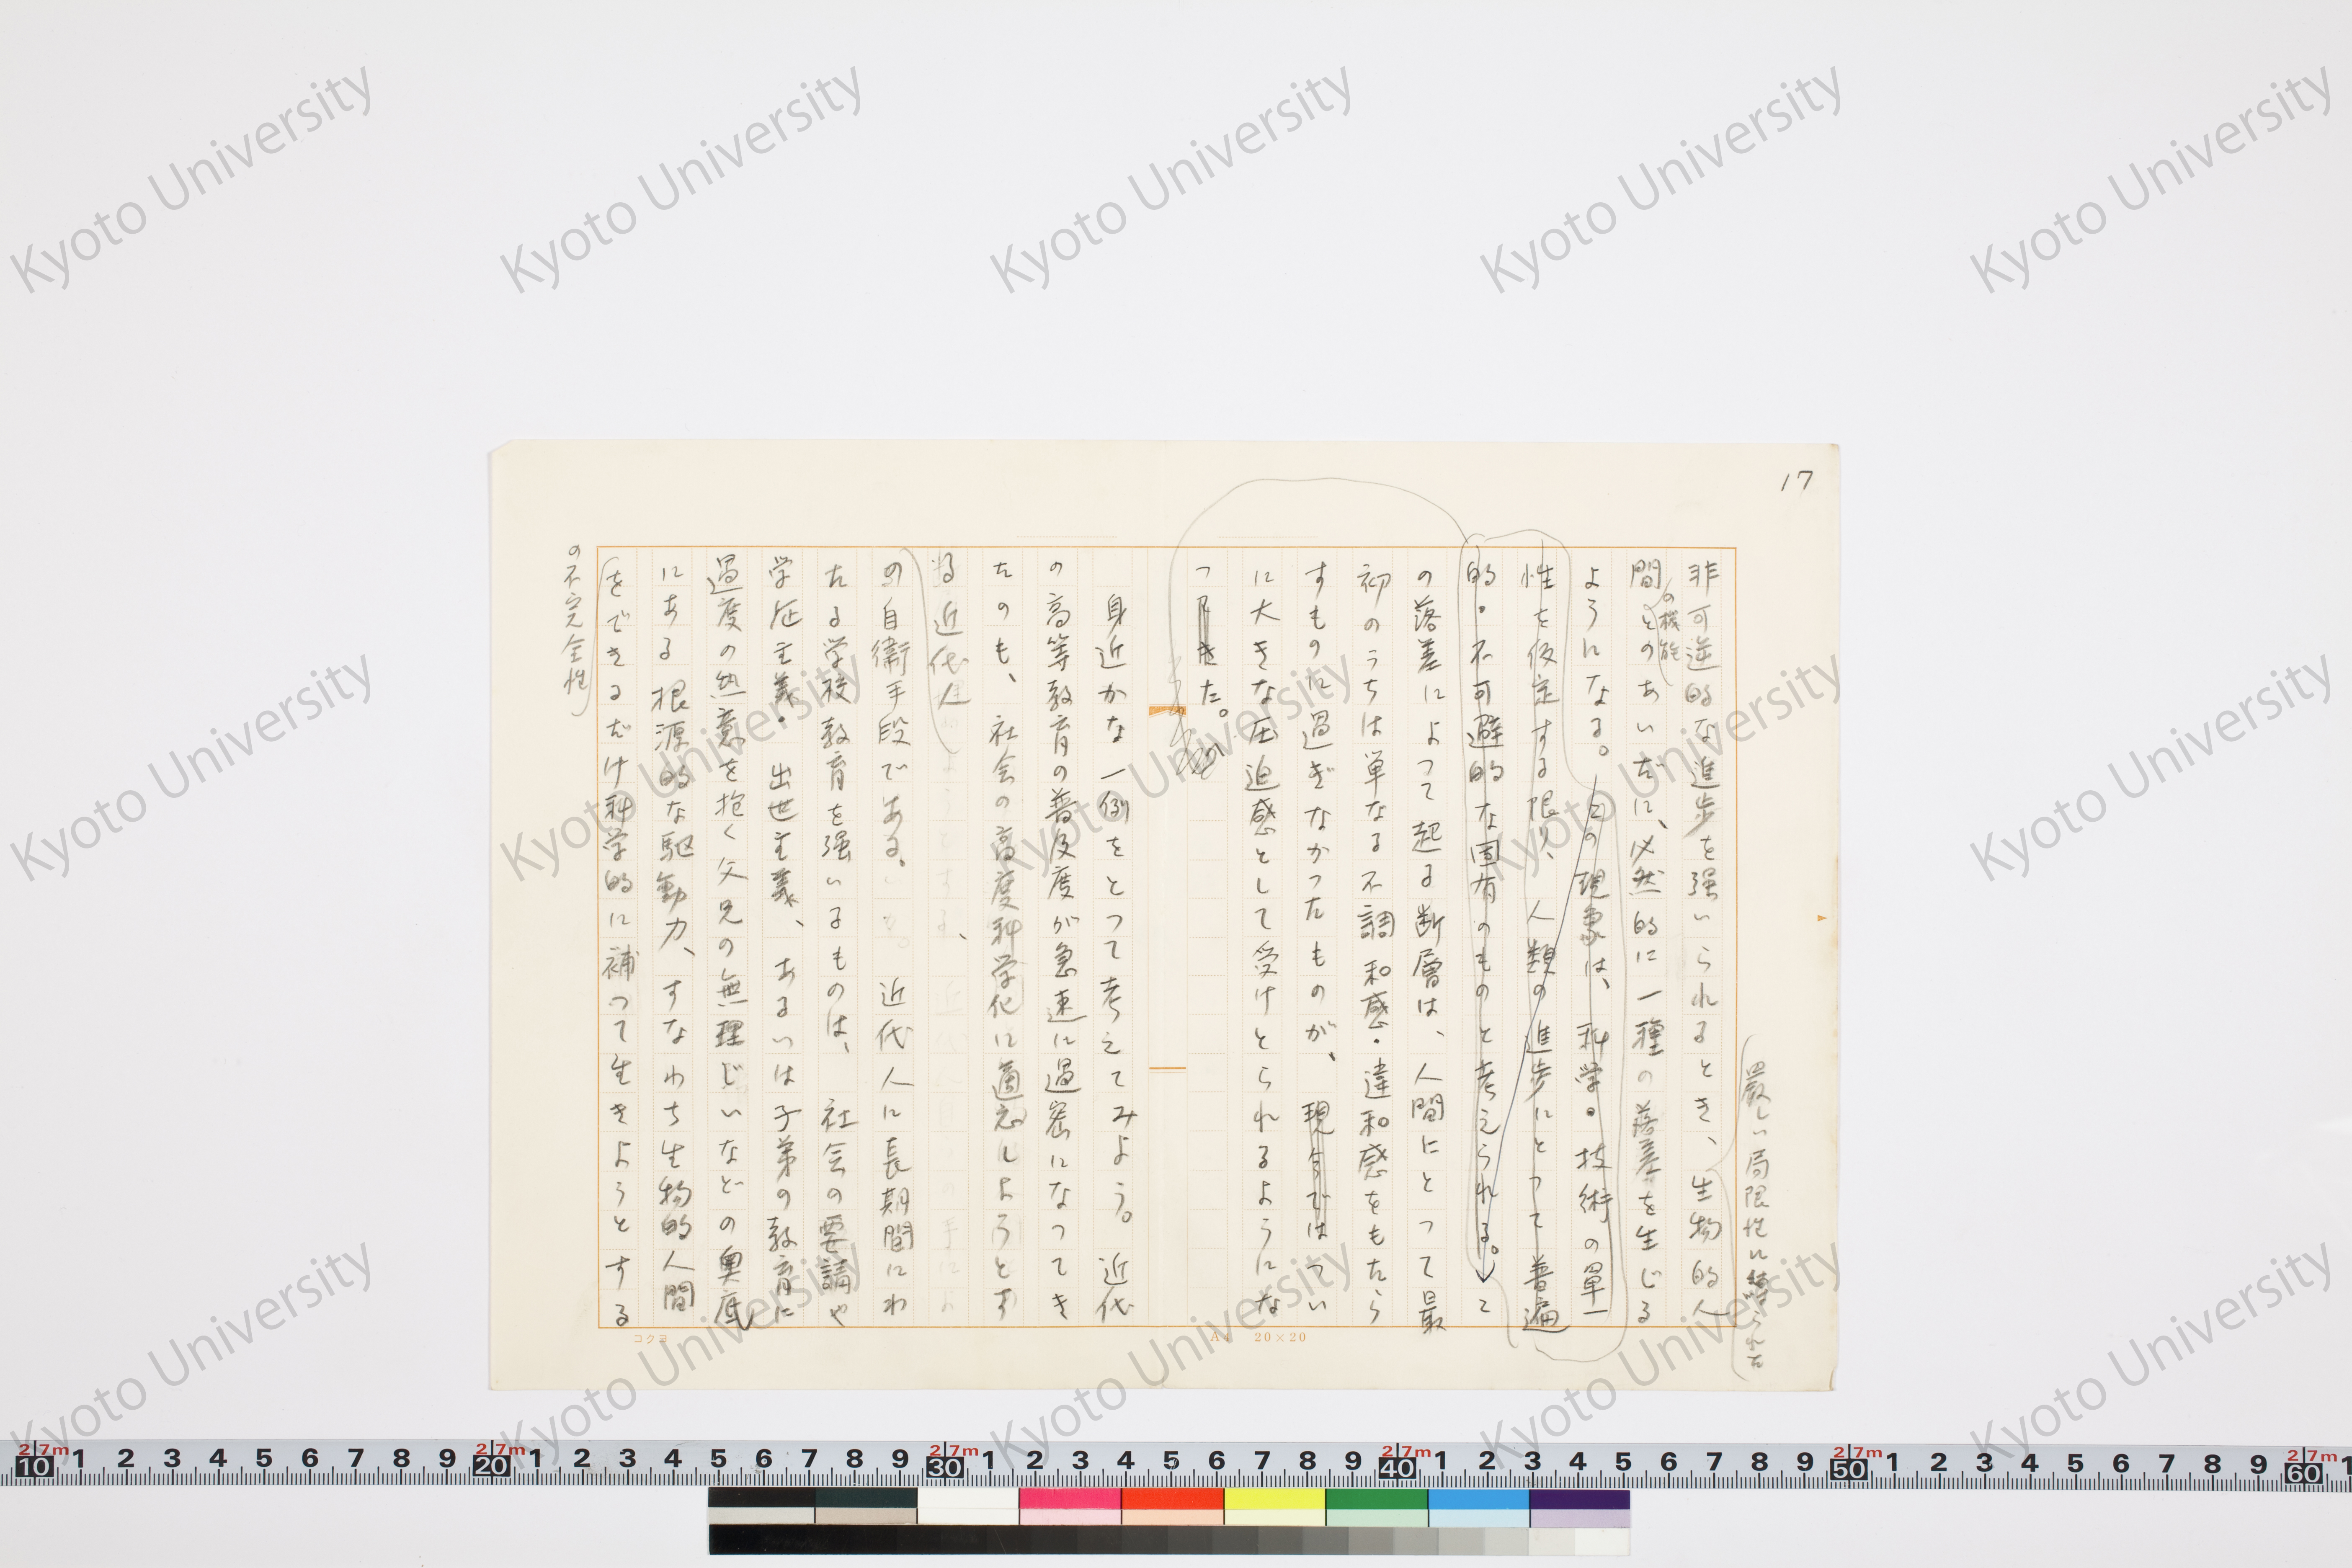 17
厳しい局限性に縛られた
非可逆的な進歩を強いられるとき、生物的人
の機能
間とのあいだに、必然的に一種の落差を生じる
ようになる。この現象は、科学・技術の単一
性を仮定する限り、人類の進歩にとって普遍
的・不可避的な固有のものと考えられる。こ
の落差によって起る断層は、人間にとって最
初のうちは単なる不調和感・違和感をもたら
すものに過ぎなかったものが、現今ではつい
に大きな圧迫感として受けとられるようにな
ってきた。
身近かな一例をとって考えてみよう。近代
の高等教育の普及度が急速に過密になってき
たのも、社会の高度科学化に適応しようとす
る近代人、
の自衛手段である。近代人に長期間にわ
たる学校教育を強いるものは、社会の要請や
学歴主義・出世主義、あるいは子弟の教育に
過度の熱意を抱く父兄の無理じいなどの奥底
にある根源的な駆動力、すなわち生物的人間
をできるだけ科学的に補って生きようとする
の不完全性
コクヨ
A4 20×20
Kyoto University